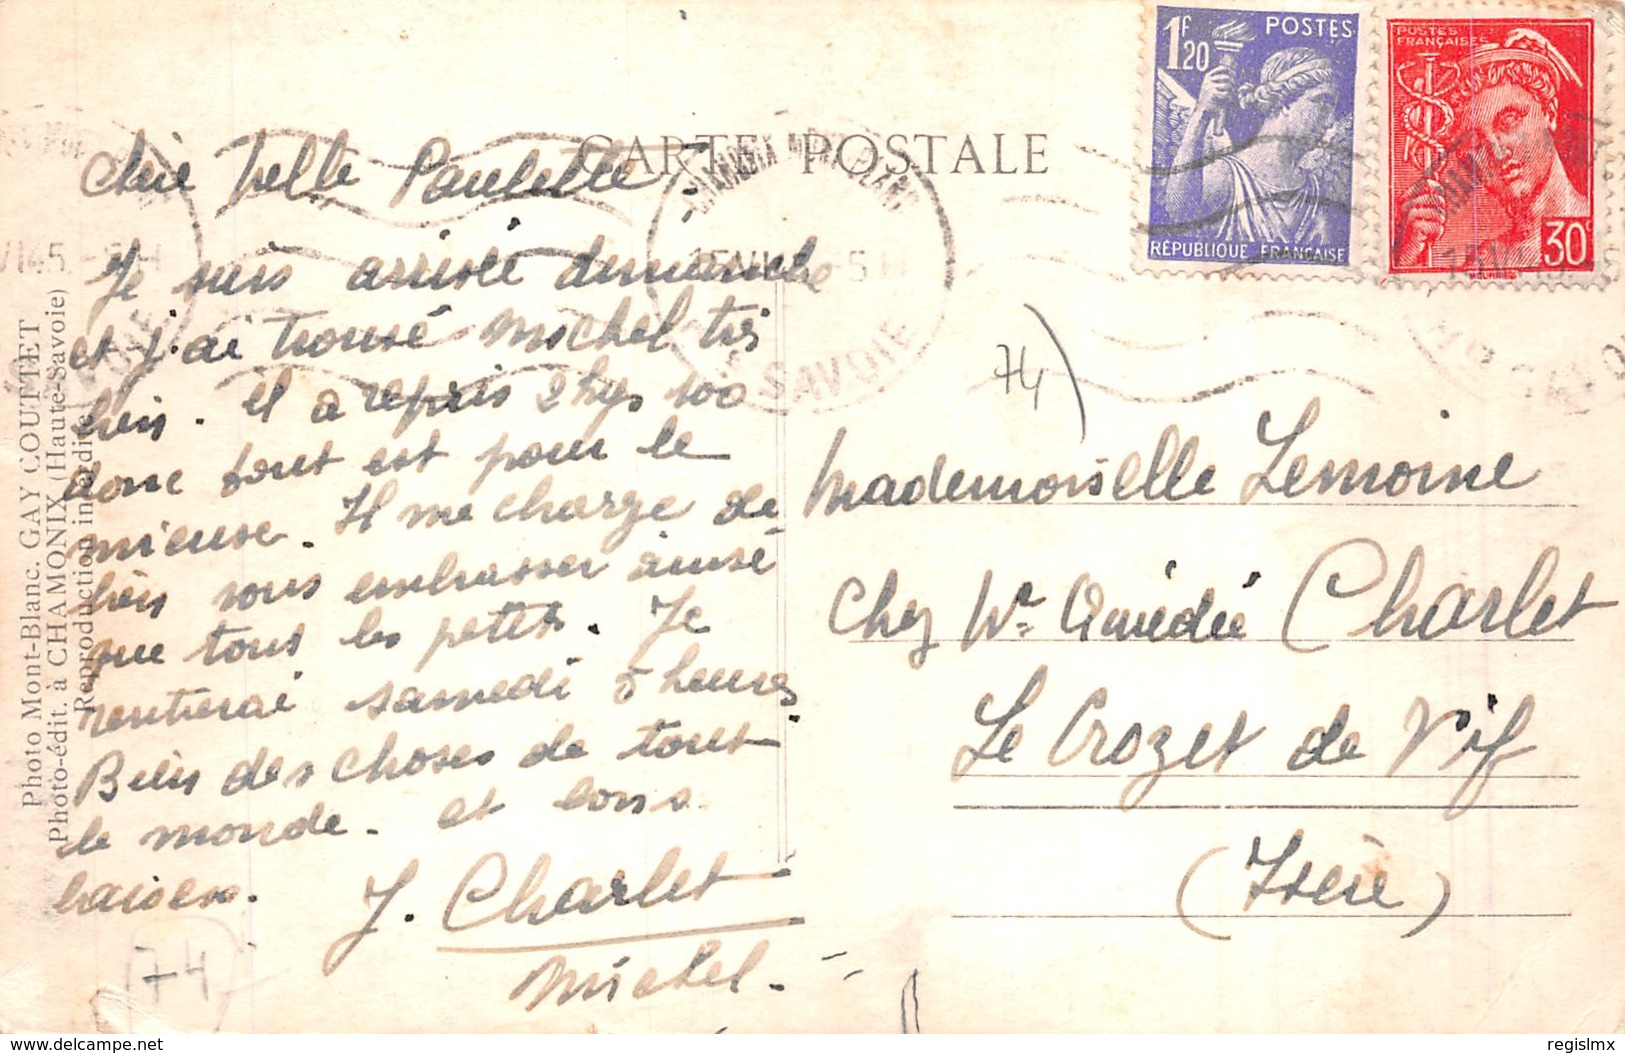 CARTE POSTALE
1F20 POSTES
RÉPUBLIQUE FRANÇAISE
POSTES
FRANÇAISES
30c
SAVOIE
Photo Mont-Blanc. GAY COUTTET
Photo-édit. à CHAMONIX (Haute-Savoie)
Reproduction interdite
Paulette
Je suis arrivée dimanche
et j'ai trouvé Michel très
bien. Il a repris 2 kgs 100
donc tout est pour le
mieux. Il me charge de
bien vous embrasser ainsi
que tous les petits. Je
rentrerai samedi 5 heures
Bien des choses de tout
le monde. et bons
baisers.
J. Charlet
Michel.
74)
74
Mademoiselle Lemoine
Chez Mr Amédée Charlet
Le Crozet de Vif
(Isère)
delcampe.net
regislmx